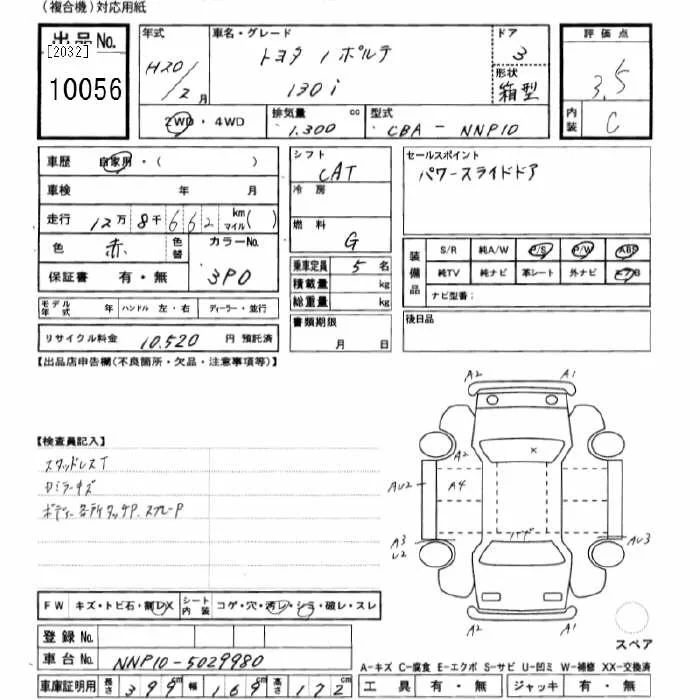 (複合機)対応用紙
出品No.
[2032]
10056
年式
H20/2月
車名・グレード
トヨタ / ポルテ
130i
ドア
3
形状
箱型
評価点
3.5
内装
C
2WD・4WD
排気量
1.300 cc
型式
CBA-NNP10
車歴 自家用・( )
車検 年 月
走行 12万 8千 662 km マイル( )
色 赤 色替 カラーNo. 3P0
保証書 有・無
モデル年式 年 ハンドル 左・右 ディーラー・並行
リサイクル料金 10.520 円 預託済
シフト
CAT
冷房
燃料
G
乗車定員 5 名
積載量 kg
総重量 kg
書類期限
月 日
セールスポイント
パワースライドドア
装備品
S/R 純A/W P/S P/W ABS
純TV 純ナビ 革シート 外ナビ エアB
ナビ型番:
後日品
【出品店申告欄(不良箇所・欠品・注意事項等)】
【検査員記入】
スタッドレスT
ボディー各所タッチP. スプレーP
A2 A1
A2
×
AU2 A4
A3 U2
AU3
A2 A1
スペア
FW キズ・トビ石・割レX シート内装 コゲ・穴・汚レ・シミ・破レ・スレ
登録No.
車台No. NNP10-5029980
車庫証明用 長さ 399 幅 169 高さ 172
A-キズ C-腐食 E-エクボ S-サビ U-凹ミ W-補修 XX-交換済
工具 有・無 ジャッキ 有・無